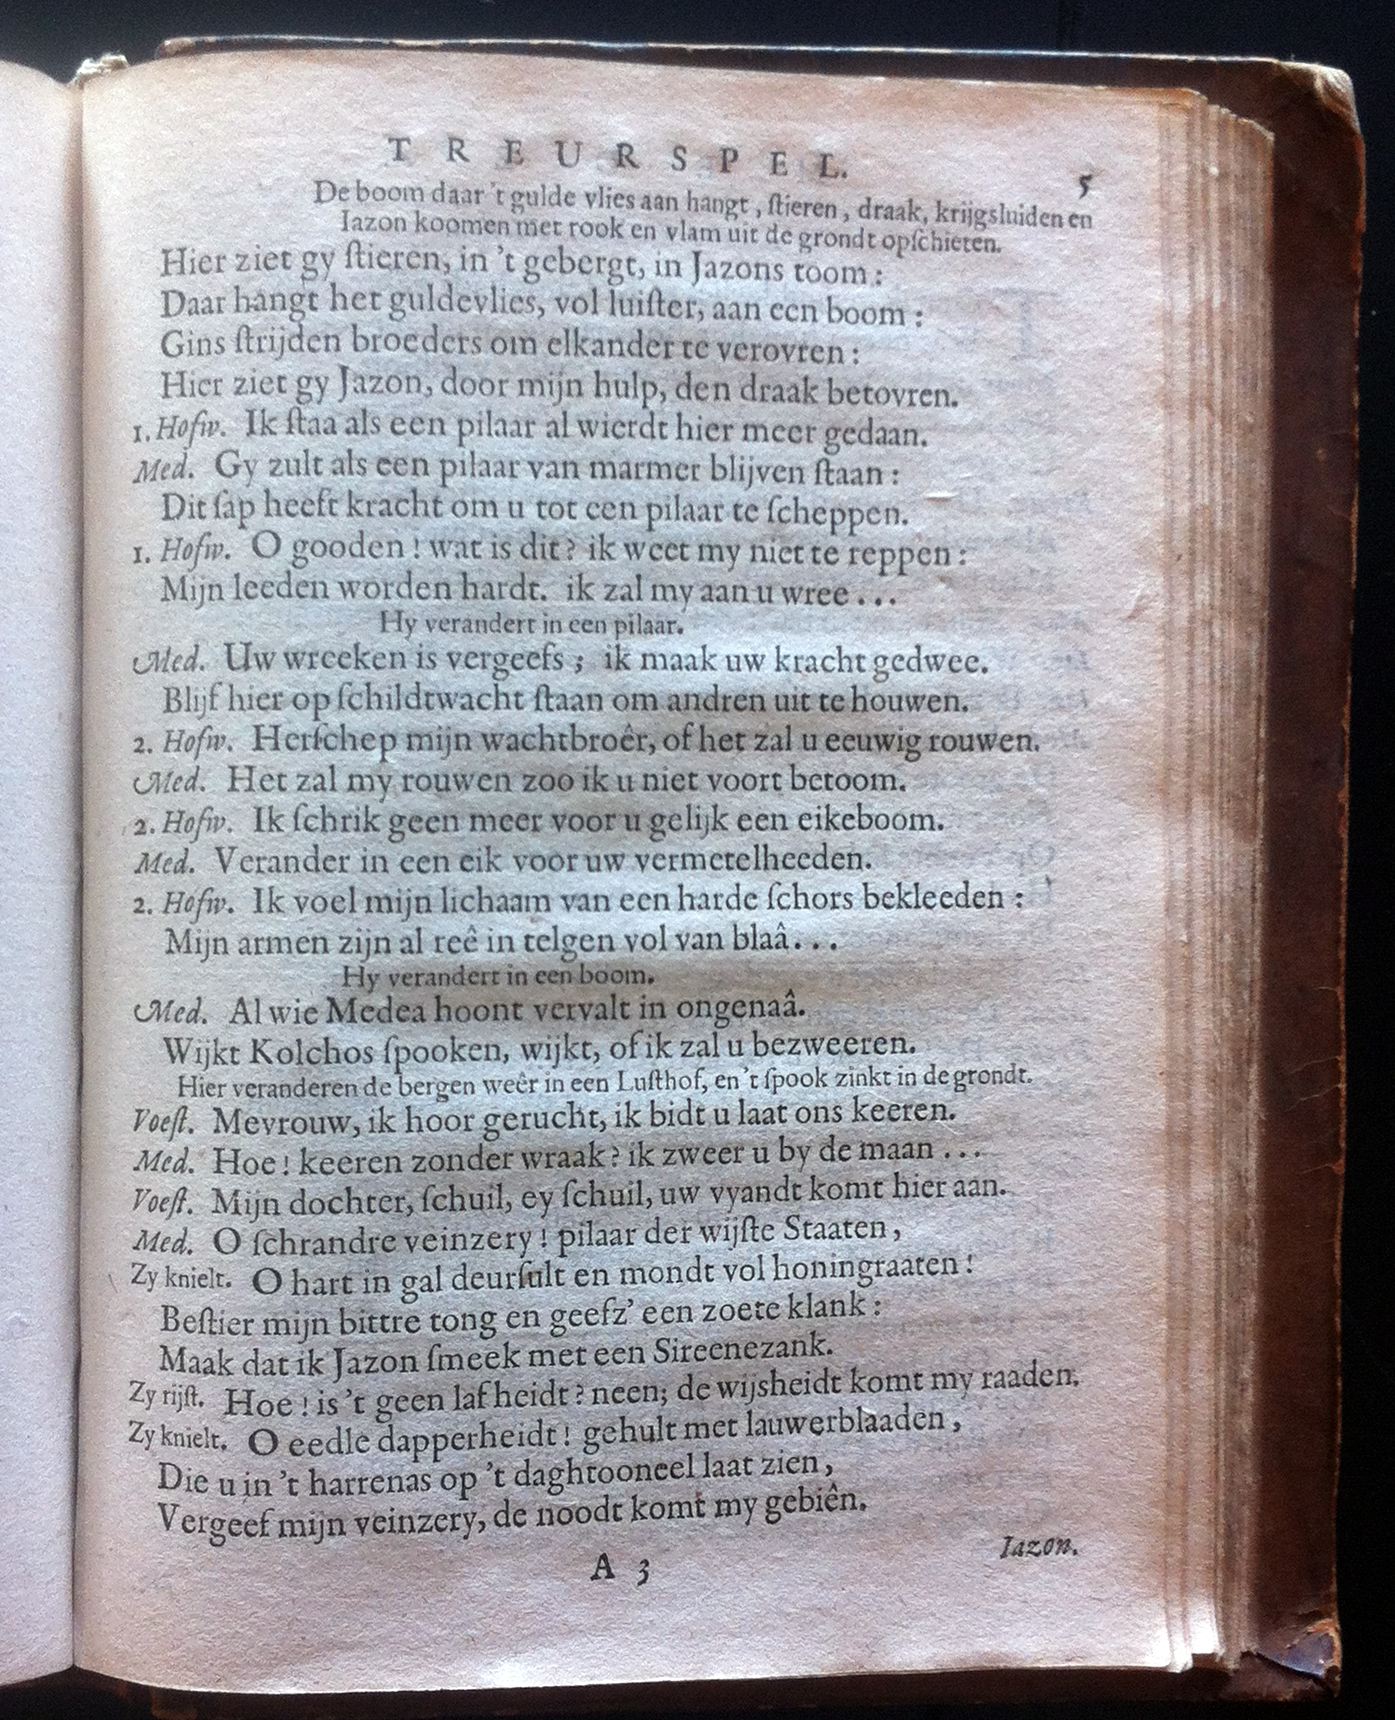 TREURSPEL. 5
De boom daar 't gulde vlies aan hangt, ſtieren, draak, krijgsluiden en
Iazon koomen met rook en vlam uit de grondt opſchieten.
Hier ziet gy ſtieren, in 't gebergt, in Jazons toom:
Daar hangt het guldevlies, vol luiſter, aan een boom:
Gins ſtrijden broeders om elkander te verovren:
Hier ziet gy Jazon, door mijn hulp, den draak betovren.
1. Hofw. Ik ſtaa als een pilaar al wierdt hier meer gedaan.
Med. Gy zult als een pilaar van marmer blijven ſtaan:
Dit ſap heeft kracht om u tot een pilaar te ſcheppen.
1. Hofw. O gooden! wat is dit? ik weet my niet te reppen:
Mijn leeden worden hardt. ik zal my aan u wree...
Hy verandert in een pilaar.
Med. Uw wreeken is vergeefs; ik maak uw kracht gedwee.
Blijf hier op ſchildtwacht ſtaan om andren uit te houwen.
2. Hofw. Herſchep mijn wachtbroêr, of het zal u eeuwig rouwen.
Med. Het zal my rouwen zoo ik u niet voort betoom.
2. Hofw. Ik ſchrik geen meer voor u gelijk een eikeboom.
Med. Verander in een eik voor uw vermetelheeden.
2. Hofw. Ik voel mijn lichaam van een harde ſchors bekleeden:
Mijn armen zijn al reê in telgen vol van blaâ...
Hy verandert in een boom.
Med. Al wie Medea hoont vervalt in ongenaâ.
Wijkt Kolchos ſpooken, wijkt, of ik zal u bezweeren.
Hier veranderen de bergen weêr in een Luſthof, en 't ſpook zinkt in de grondt.
Voeſt. Mevrouw, ik hoor gerucht, ik bidt u laat ons keeren.
Med. Hoe! keeren zonder wraak? ik zweer u by de maan...
Voeſt. Mijn dochter, ſchuil, ey ſchuil, uw vyandt komt hier aan.
Med. O ſchrandre veinzery! pilaar der wijſte Staaten,
Zy knielt. O hart in gal deurſult en mondt vol honingraaten!
Beſtier mijn bittre tong en geefz' een zoete klank:
Maak dat ik Jazon ſmeek met een Sireenezank.
Zy rijſt. Hoe! is 't geen lafheidt? neen; de wijsheidt komt my raaden.
Zy knielt. O eedle dapperheidt! gehult met lauwerblaaden,
Die u in 't harrenas op 't daghtooneel laat zien,
Vergeef mijn veinzery, de noodt komt my gebiên.
A 3 Iazon.